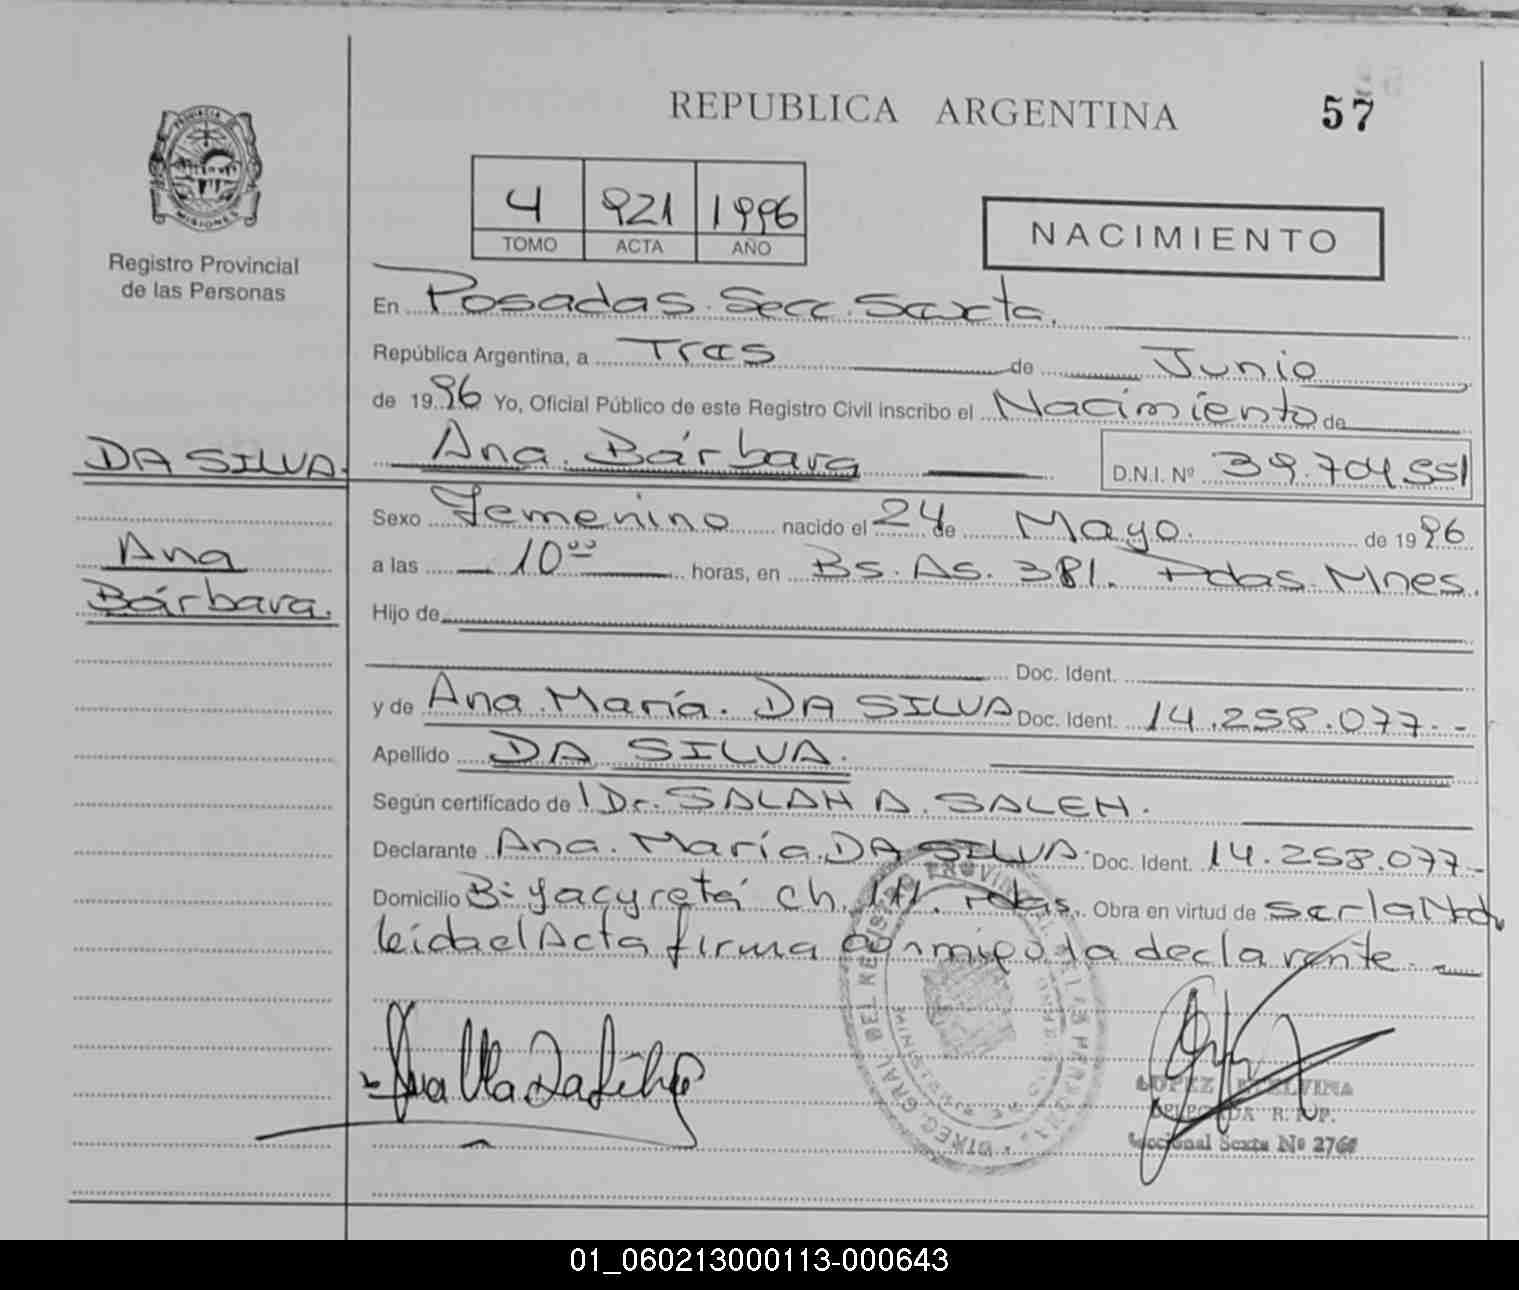 REPUBLICA ARGENTINA
57
PROVINCIA
MISIONES
Registro Provincial
de las Personas
4 921 1996
TOMO ACTA AÑO
NACIMIENTO
En Posadas. Secc. Sexta.
República Argentina, a Tres de Junio
de 1996 Yo, Oficial Público de este Registro Civil inscribo el Nacimiento de
DA SILVA.
Ana. Bárbara D.N.I. Nº 39.704.551
Sexo Femenino nacido el 24 de Mayo. de 1996
Ana
Bárbara.
a las 10 00 horas, en Bs. As. 381. Pdas. Mnes.
Hijo de
Doc. Ident.
y de Ana. María. DA SILVA Doc. Ident. 14.258.077.-
Apellido DA SILVA.
Según certificado de Dr. SALAH A. SALEH.
Declarante Ana. María. DA SILVA. Doc. Ident. 14.258.077-
Domicilio Bº Yacyretá ch. Pdas. Obra en virtud de ser la
leida el Acta firma la declarante.
LOPEZ ETELVINA
DELEGADA R. P.
Seccional Sexta Nº
01_060213000113-000643